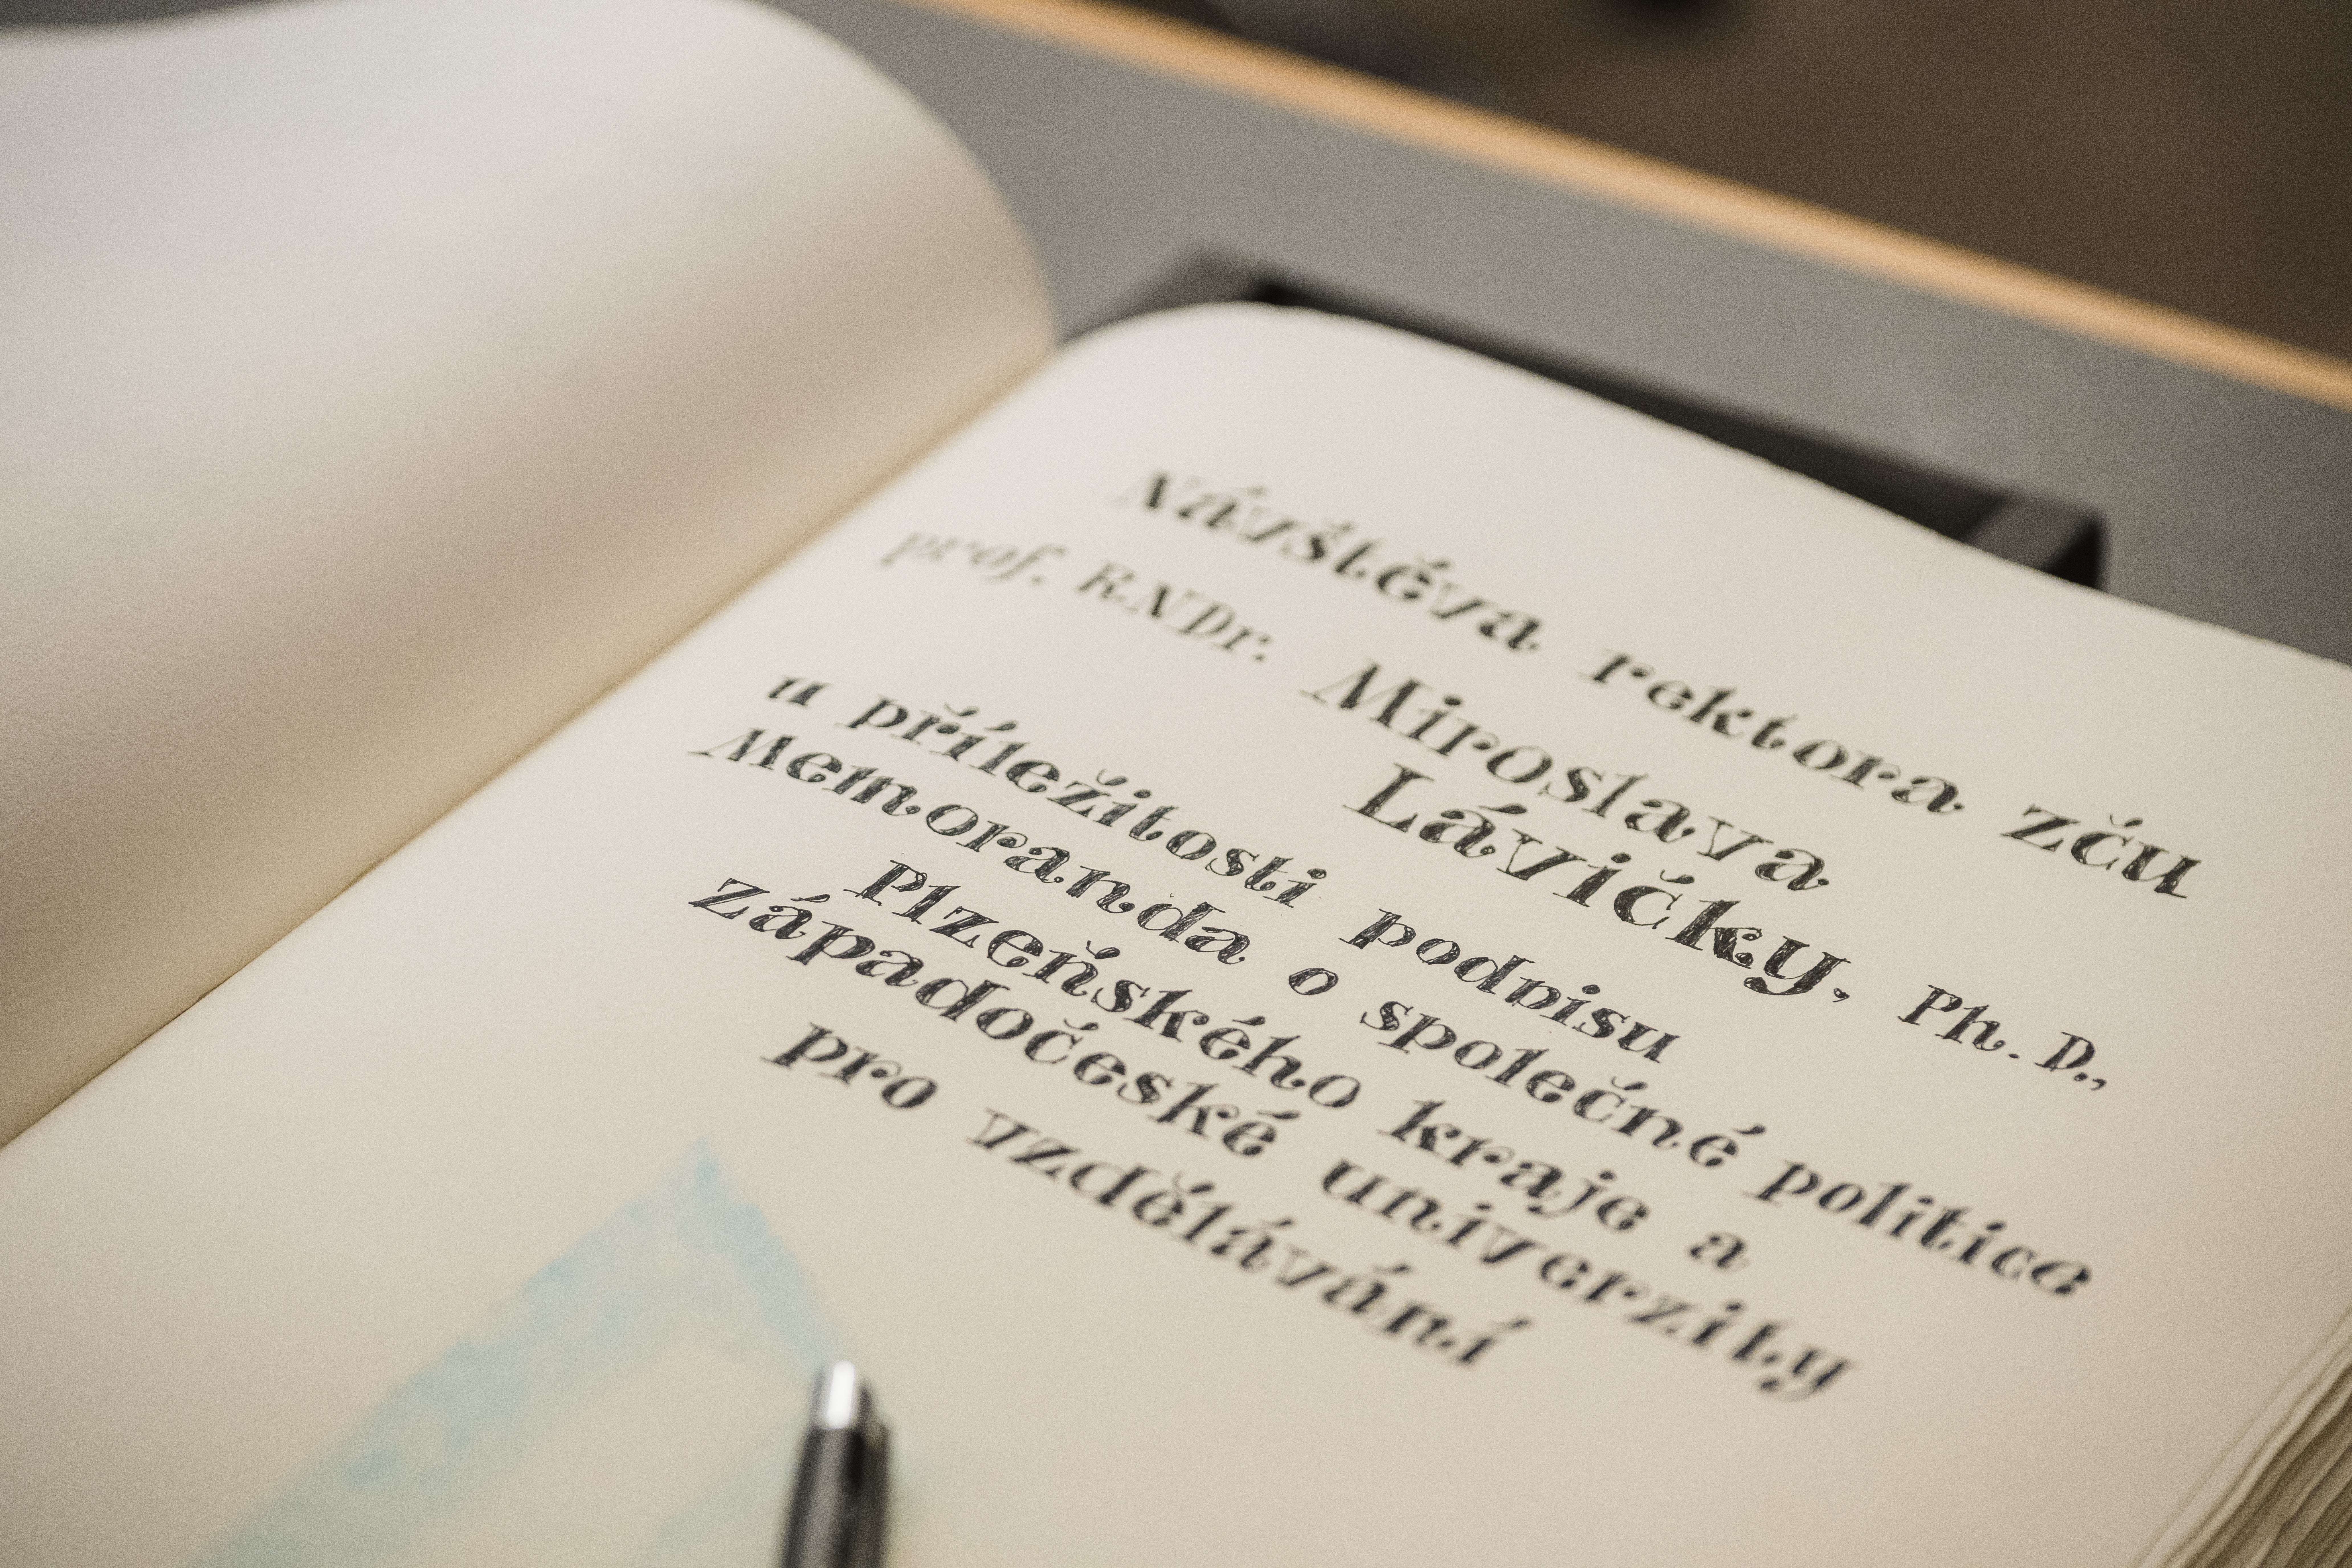 Návštěva rektora ZČU
prof. RNDr. Miroslava
Lávičky, Ph.D.,
u příležitosti podpisu
Memoranda o společné politice
Plzeňského kraje a
Západočeské univerzity
pro vzdělávání